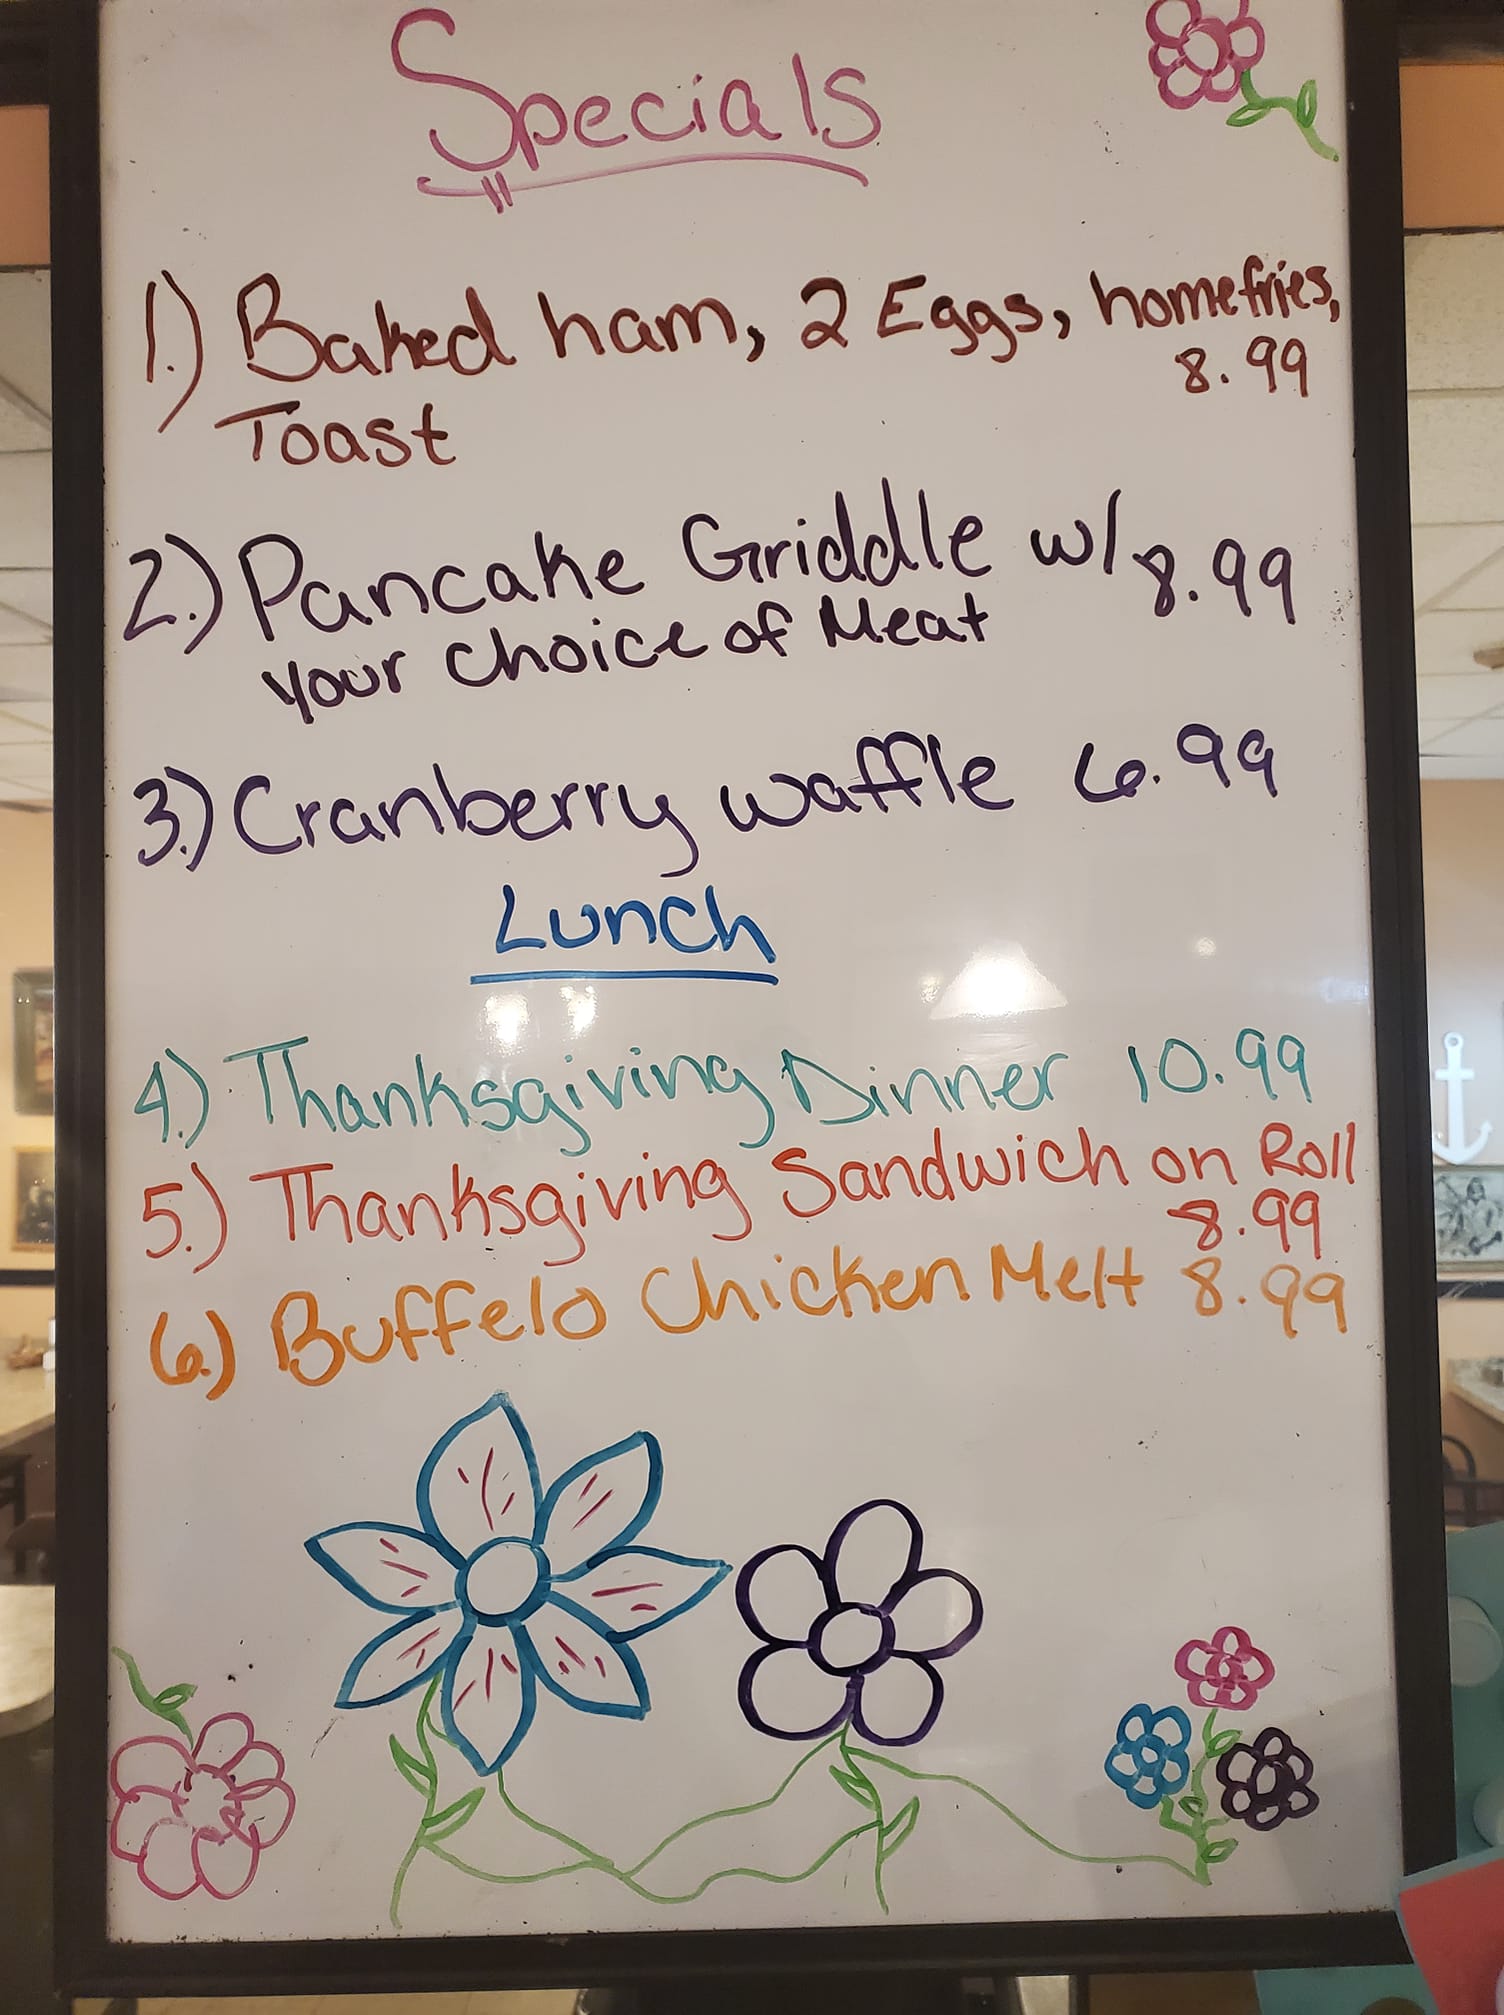 Specials
1.) Baked ham, 2 Eggs, homefries,
8.99
Toast
2.) Pancake Griddle w/ 8.99
your choice of Meat
3.) Cranberry waffle 6.99
Lunch
4.) Thanksgiving Dinner 10.99
5.) Thanksgiving Sandwich on Roll
8.99
6.) Buffelo Chicken Melt 8.99